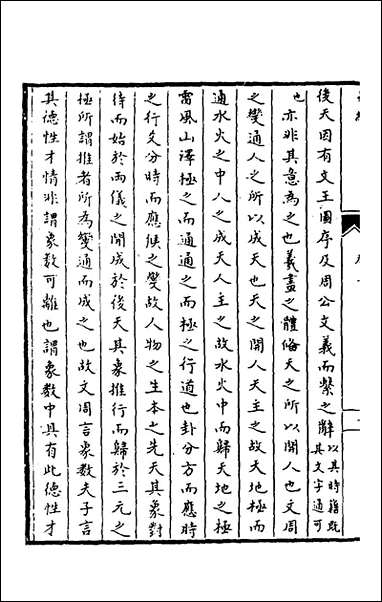 後天因有文王圖序及周公文義而繫之辭以其時籍既
其文字通可
也亦非其意為之也羲畫之體偹天之所以開人也文周
之變通人之所以成天也天之開人天主之故天地極而
通水火之中人之成天人主之故水火中而歸天地之極
雷風山澤極之而通通之而極之行道也卦分方而應時
之行爻分時而應候之變故人物之生本之先天其象對
待而始於兩儀之開成於後天其象推行而歸於三元之
極所謂推者所為變通而成之也故文周言象數夫子言
其德性才情非謂象數可離也謂象數中具有此德性才